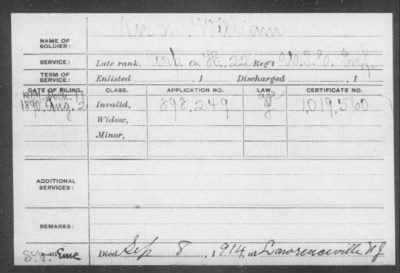 NAME OF SOLDIER: William
SERVICE: Late rank, Co. 22 Reg't Inf.
TERM OF SERVICE: Enlisted , 1 Discharged , 1
DATE OF FILING. CLASS. APPLICATION NO. LAW. CERTIFICATE NO.
1890 Aug. 2 Invalid, 898.249 1,019,560
Widow,
Minor,
ADDITIONAL SERVICES:
REMARKS:
Died Sep 8, 1914, at Lawrenceville N.J.